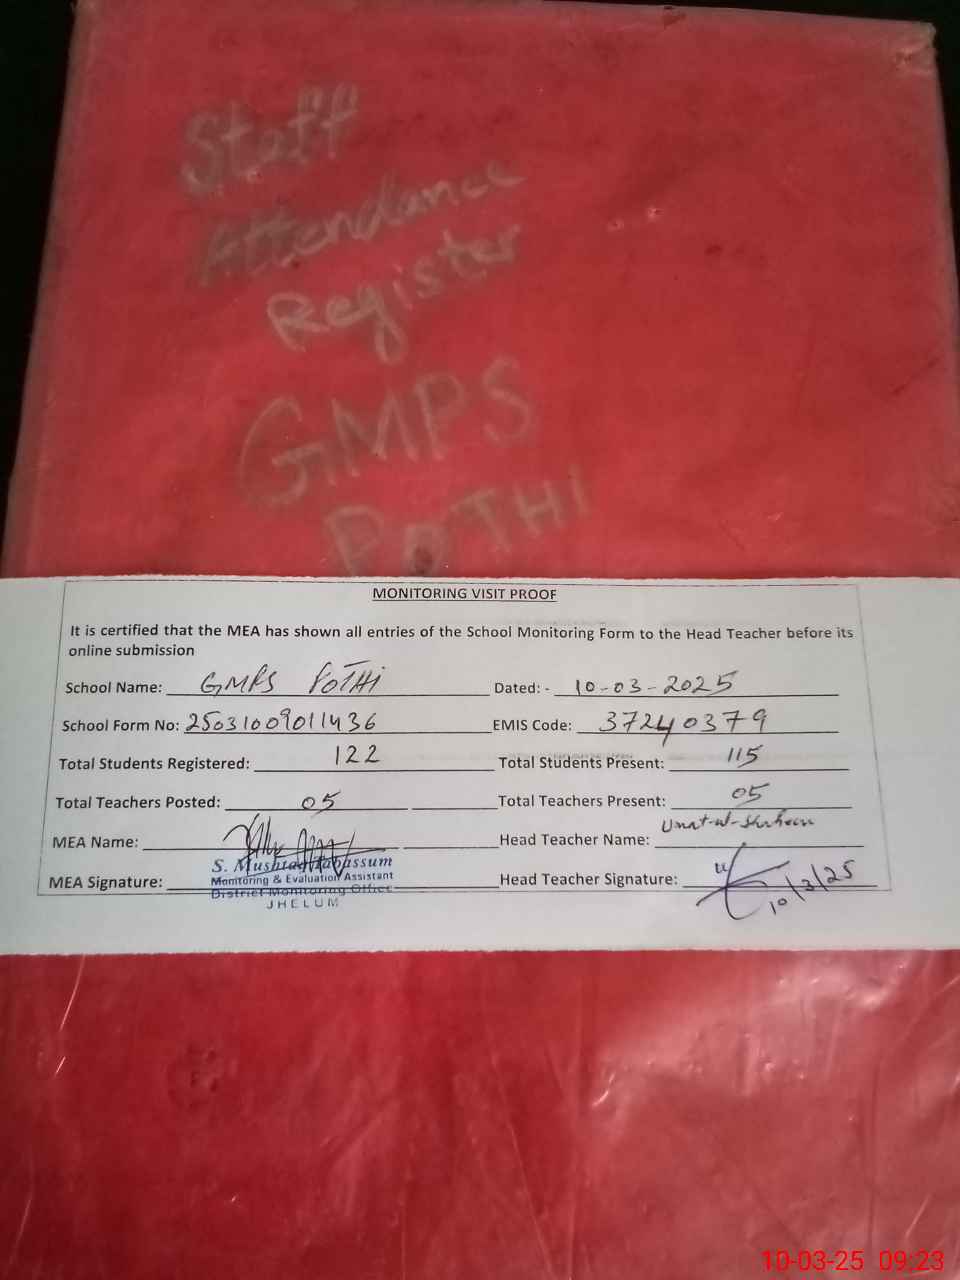 Staff
Attendance
Register
GMPS
POTHI
MONITORING VISIT PROOF
It is certified that the MEA has shown all entries of the School Monitoring Form to the Head Teacher before its
online submission
School Name: GMPS POTHI Dated: - 10-03-2025
School Form No: 25031009011436 EMIS Code: 37240379
Total Students Registered: 122 Total Students Present: 115
Total Teachers Posted: 05 Total Teachers Present: 05
MEA Name: Head Teacher Name:
S. Mushtaq Tabassum
Monitoring & Evaluation Assistant
MEA Signature: Head Teacher Signature: 10/3/25
District Monitoring Office
JHELUM
10-03-25 09:23